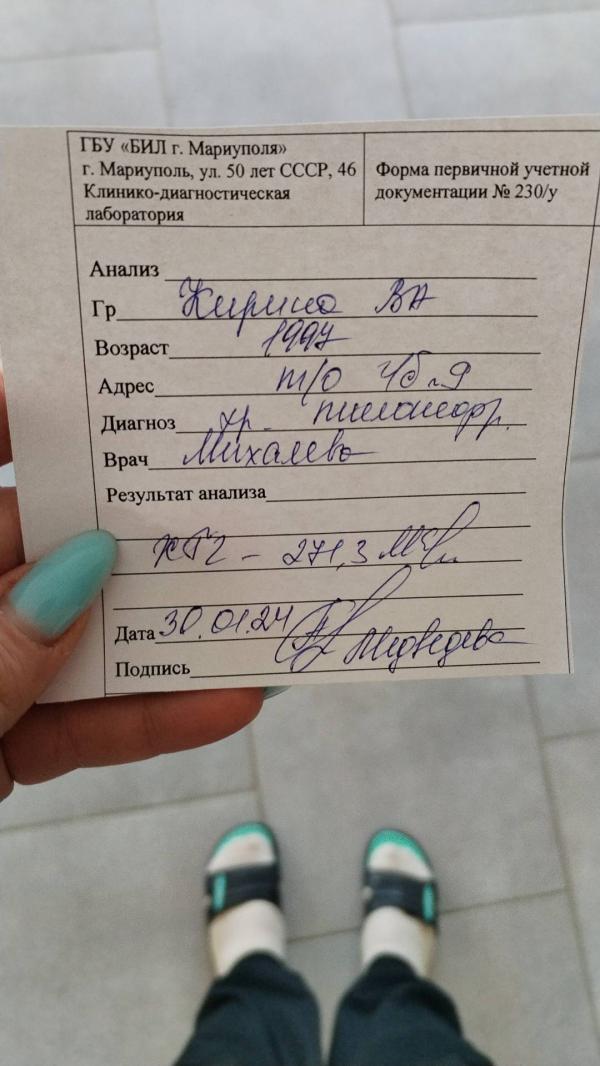 ГБУ «БИЛ г. Мариуполя»
г. Мариуполь, ул. 50 лет СССР, 46
Клинико-диагностическая
лаборатория
Форма первичной учетной
документации № 230/у
Анализ
Гр Кирица ВА
Возраст 1997
Адрес т/о
Диагноз хр. пиелонефр.
Врач Михалева
Результат анализа
ХГЧ - 271,3
Дата 30.01.24 Медведева
Подпись